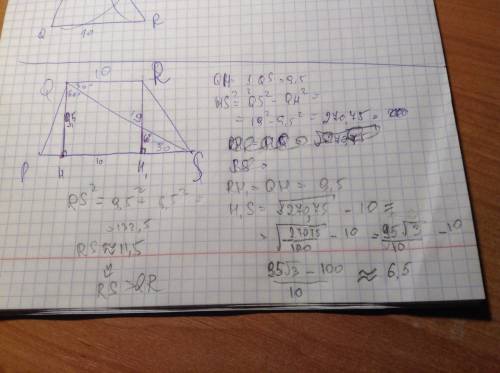 Q 10 R
10
Q R
60°
9,5 19
30
P H 10 H₁ S
QH = ½QS = 9,5
HS² = QS² - QH² =
= 19² - 9,5² = 270,75
RH₁ = QH = 9,5
H₁S = √270,75 - 10 =
= √(27075/100) - 10 = 95√3/10 - 10
(95√3 - 100)/10 ≈ 6,5
RS² = 9,5² + 6,5² =
= 132,5
RS ≈ 11,5
⇓
RS > QR